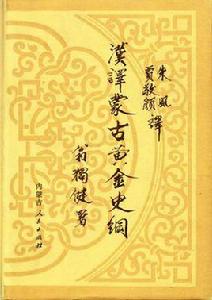 朱風
賈敬顔 譯
漢譯蒙古黃金史綱
翁獨健署
内蒙古人民出版社